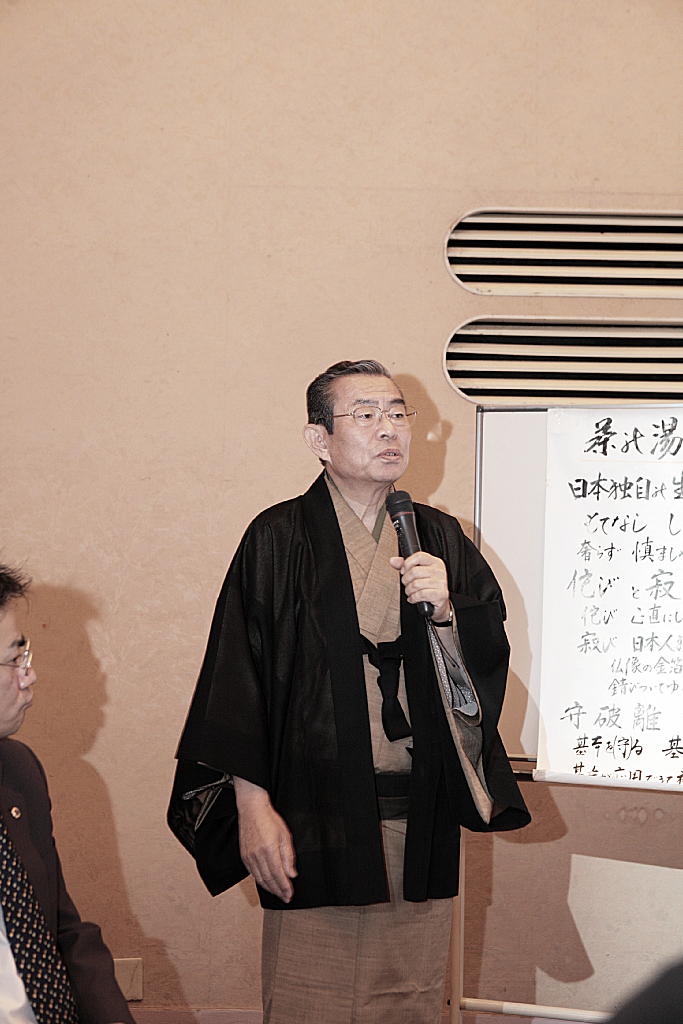 茶の湯
日本独自の生
もてなし し
奢らず 慎まし
侘び と 寂
侘び 正直にし
寂び 日本人独
仏像の金箔
錆びついてゆ
守 破 離
基本を(守)る 基